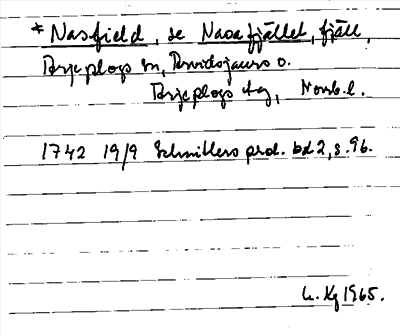 * Nasfield, se Nasafjället, fjäll,
Arjeplogs sn, Arvidsjaurs o.
Arjeplogs tg, Norrb. l.
1742 19/9 Schnitlers prot. bd 2, s. 96.
L. Kg 1965.